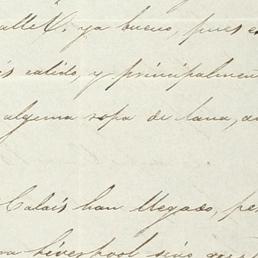 ya bueno, pues
calido, y principalmen
alguna ropa de lana,
Calais han llegado, pe
Liverpool sino